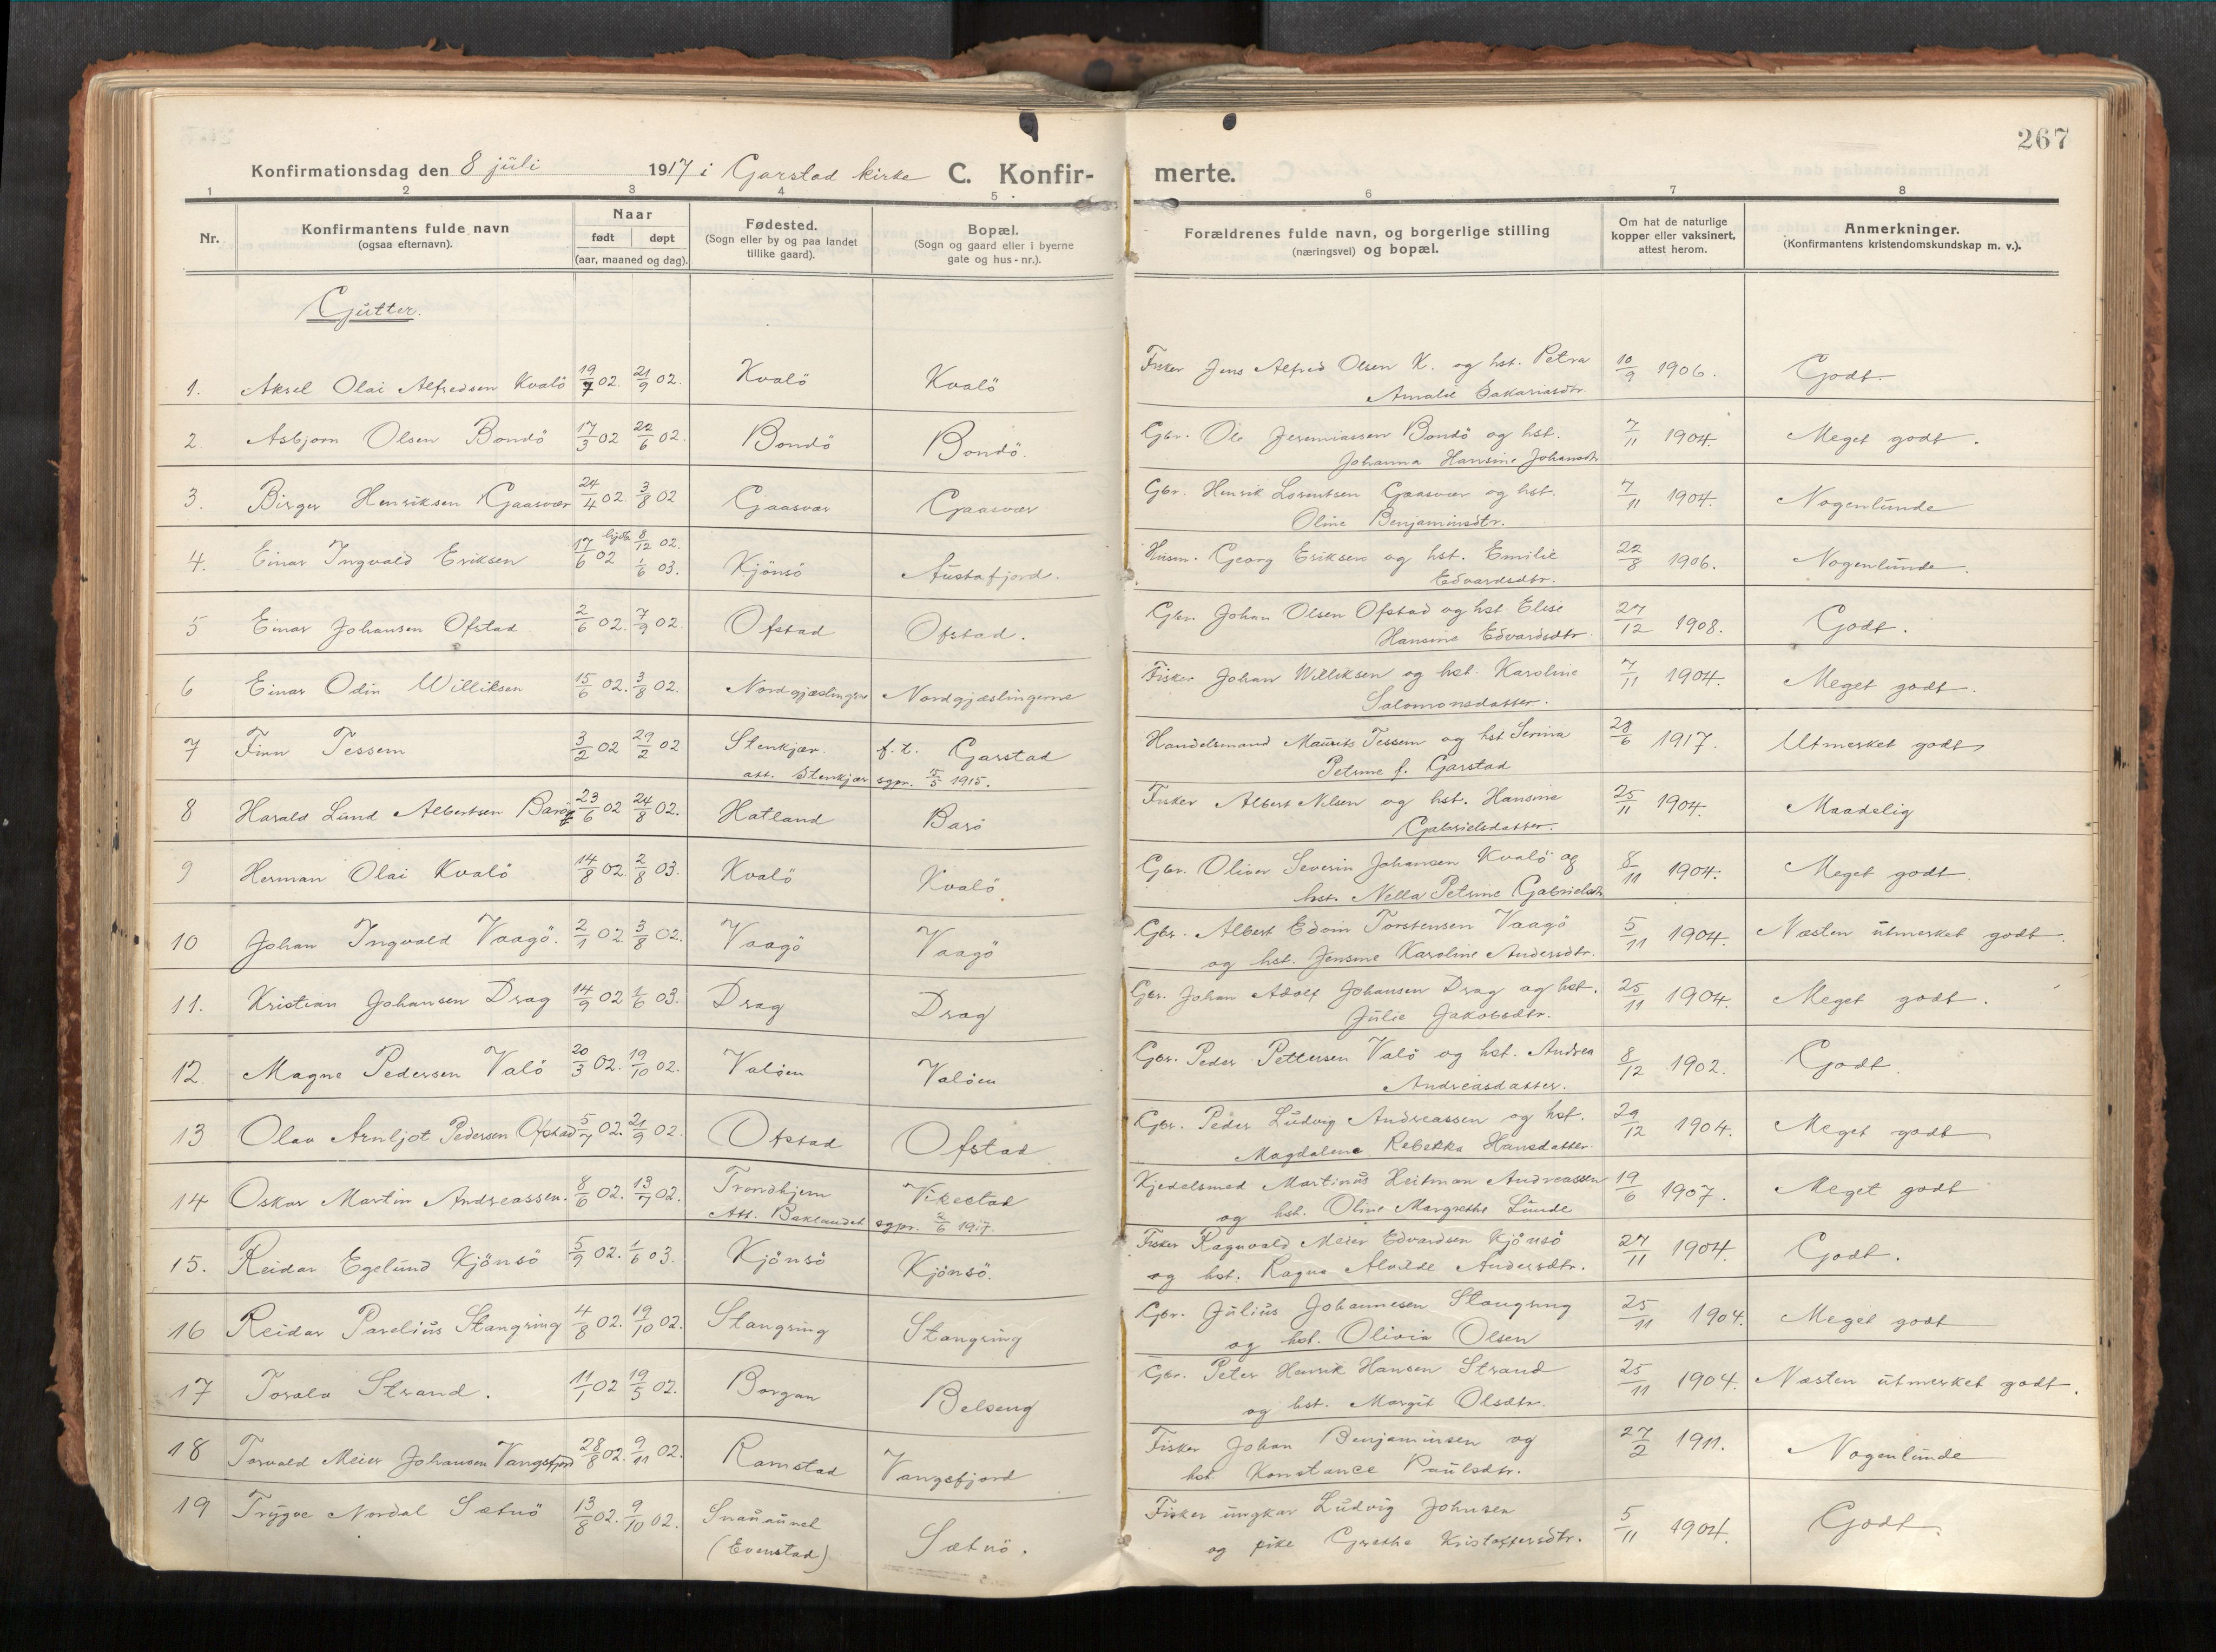 267
Konfirmationsdag den 8 juli 1917 i Garstad kirke C. Konfir- merte.
1 2 3 4 5 6 7 8
Nr. Konfirmantens fulde navn (ogsaa efternavn). Naar født døpt (aar, maaned og dag). Fødested. (Sogn eller by og paa landet tillike gaard). Bopæl. (Sogn og gaard eller i byerne gate og hus-nr.). Forældrenes fulde navn, og borgerlige stilling (næringsvei) og bopæl. Om hat de naturlige kopper eller vaksinert, attest herom. Anmerkninger. (Konfirmantens kristendomskundskap m. v.).
Gutter.
1. Aksel Olai Alfredsen Kvalö 19/7 02. 21/9 02. Kvalö Kvalö Fisker Jens Alfred Olsen K. og hst. Petra 10/9 1906. Godt.
Amalie Sakariasdtr.
2. Asbjørn Olsen Bondö 17/3 02 22/6 02. Bondö Bondö. Gbr. Ole Jeremiassen Bondö og hst. 7/11 1904. Meget godt.
Johanna Hansine Johansdtr
3. Birger Henriksen Gaasvær 24/4 02. 3/8 02 Gaasvær Gaasvær Gbr. Henrik Lorentsen Gaasvær og hst. 7/11 1904. Nogenlunde
Oline Benjaminsdtr.
4. Einar Ingvald Eriksen 17/6 02 8/12 02. 1/6 03. Kjönsö Austafjord. Husm. Georg Eriksen og hst. Emilie 22/8 1906. Nogenlunde.
Edvardsdtr.
5 Einar Johansen Ofstad 2/6 02. 7/9 02. Ofstad Ofstad. Gbr. Johan Olsen Ofstad og hst Elise 27/12 1908. Godt.
Hansine Edvardsdtr.
6 Einar Odin Williksen 15/6 02. 3/8 02. Nordgjæslingerne Nordgjæslingerne Fisker Johan Williksen og hst. Karoline 7/11 1904. Meget godt.
Salomonsdatter.
7 Finn Tessem 3/2 02 29/2 02 Stenkjær. f. t. Garstad Handelsmand Maurits Tessem og hst Serina 28/6 1917. Utmerket godt
att. Stenkjær sgpr. 15/5 1915. Petrine f. Garstad
8 Harald Lund Albertsen Barö 23/6 02 24/8 02. Hatland Barö Fisker Albert Nilsen og hst. Hansine 25/11 1904. Maadelig
Gabrielsdatter.
9 Herman Olai Kvalö 14/8 02. 2/8 03. Kvalö Kvalö. Gbr. Oliver Severin Johansen Kvalö og 8/11 1904. Meget godt.
hst. Nella Petrine Gabrielsdtr
10 Johan Ingvald Vaagö. 2/1 02. 3/8 02. Vaagö Vaagö Gbr. Albert Edvin Torstensen Vaagö 5/11 1904. Næsten utmerket godt.
og hst. Jensine Karoline Andersdtr.
11. Kristian Johansen Drag 14/9 02 1/6 03. Drag Drag Gbr. Johan Adolf Johansen Drag og hst. 25/11 1904. Meget godt.
Julie Jakobsdtr.
12. Magne Pedersen Valö 20/3 02. 19/10 02. Valöen Valöen Gbr. Peder Pettersen Valö og hst. Andrea 8/12 1902. Godt.
Andreasdatter.
13 Olav Arnljot Pedersen Ofstad 5/7 02. 21/9 02. Ofstad Ofstad Gbr. Peder Ludvig Andreassen og hst. 29/12 1904. Meget godt
Magdalena Rebekka Hansdatter.
14 Oskar Martin Andreassen. 8/6 02. 13/7 02. Trondhjem Vikestad Kjedelsmed Martinus Heitman Andreassen 19/6 1907. Meget godt
Att. Baklandet sgpr. 2/6 1917. og hst. Oline Margrethe Lunde
15. Reidar Egelund Kjönsö 5/9 02. 1/6 03. Kjönsö Kjönsö. Fisker Ragnvald Meier Edvardsen Kjönsö 27/11 1904. Godt.
og hst. Ragna Alvilde Andersdtr.
16 Reidar Parelius Stangring 4/8 02. 19/10 02. Stangring Stangring Gbr. Julius Johannesen Stangring 25/11 1904. Meget godt
og hst. Olivia Olsen
17 Toralv Strand. 11/1 02 19/5 02. Borgan Belseng Gbr. Peter Henrik Hansen Strand 25/11 1904. Næsten utmerket godt.
og hst. Margit Olsdtr.
18 Torvald Meier Johansen Vangsfjord 28/8 02. 9/11 02. Ramstad Vangsfjord Fisker Johan Benjaminsen og 27/2 1911. Nogenlunde
hst. Konstance Paulsdtr.
19 Trygve Nordal Sætnö 13/8 02. 9/10 02. Snauaunet Sætnö. Fisker ungkar Ludvig Johnsen 5/11 1904. Godt.
(Evenstad) og pike Grethe Kristoffersdtr.